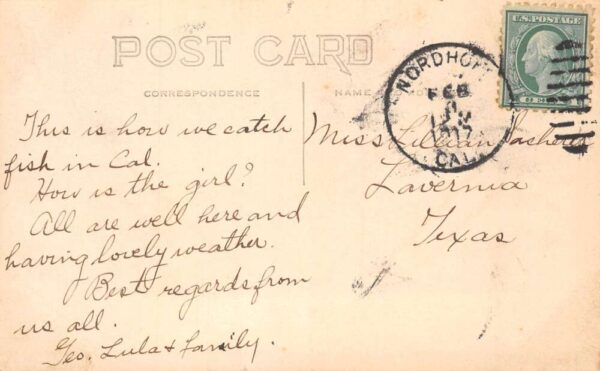 POST CARD
CORRESPONDENCE
NAME
This is how we catch
fish in Cal.
How is the girl?
All are well here and
having lovely weather.
Best regards from
us all.
Geo. Lula & family.
NORDHOFF
FEB
1917
CAL.
U.S. POSTAGE
Miss Lillian
Lavernia
Texas